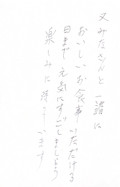 又みなさんと一諸に
おいしいお食事いただける
日まで元気にすごしましょう
楽しみに待っています